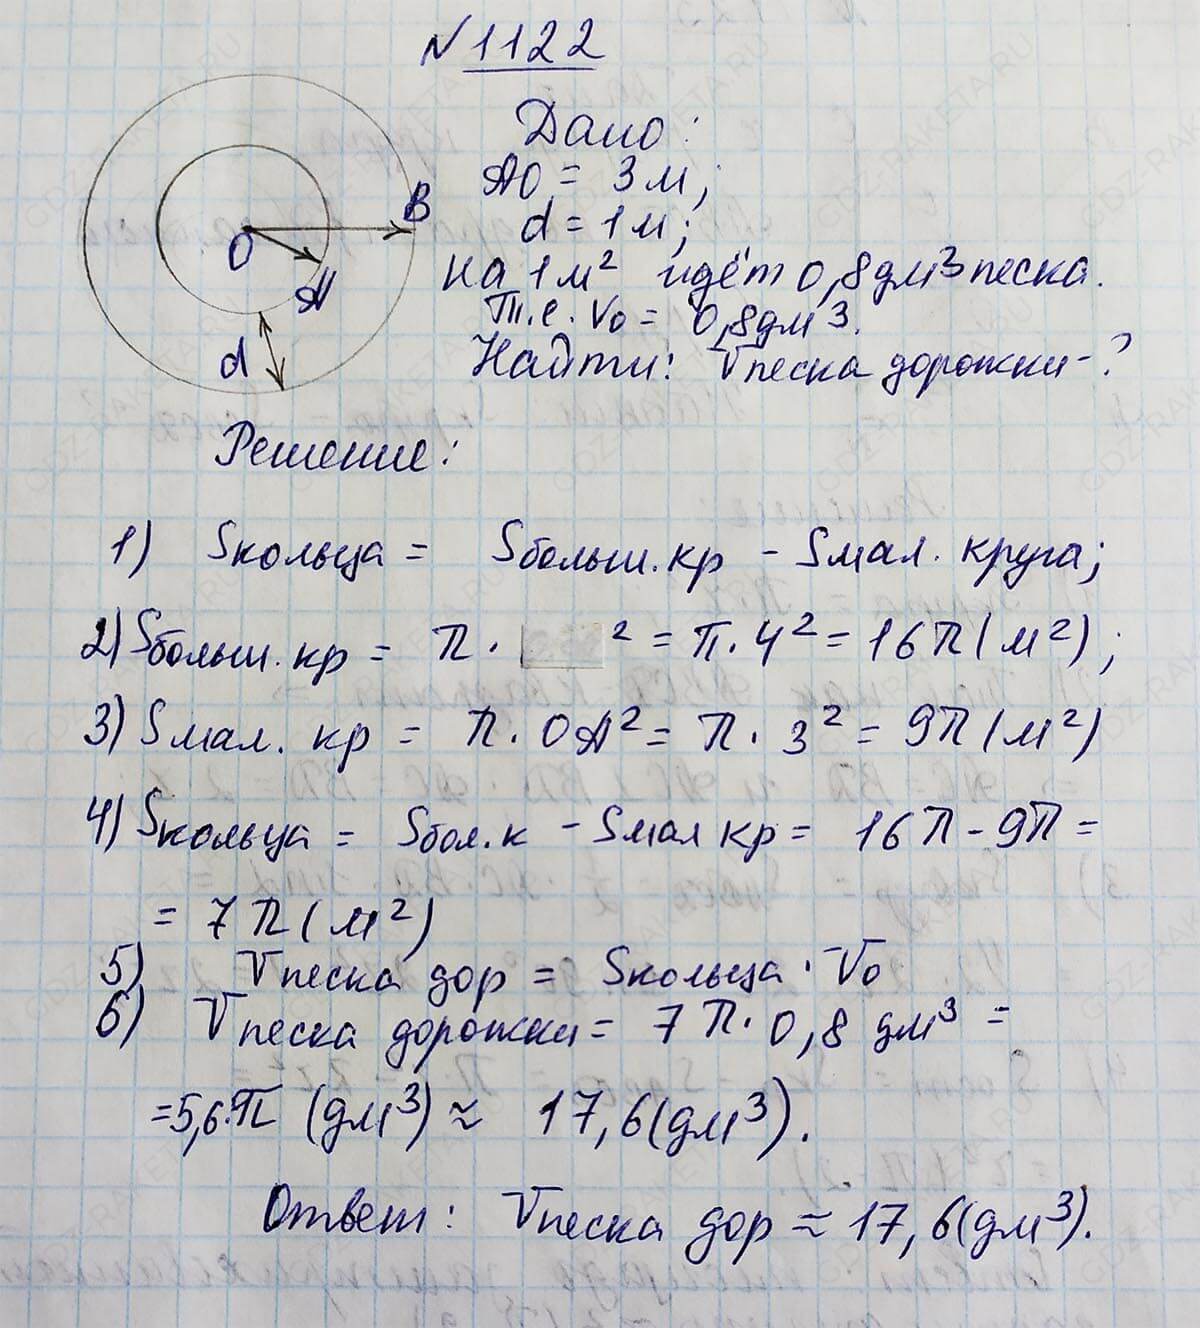 N 1122
Дано:
AO = 3 м;
d = 1 м;
на 1 м² идёт 0,8 дм³ песка.
т.е. V₀ = 0,8 дм³.
Найти: Vпеска дорожки - ?
O
A
B
d
Решение:
1) Sкольца = Sбольш.кр - Sмал. круга;
2) Sбольш.кр = π · ² = π · 4² = 16π (м²);
3) Sмал. кр = π · OA² = π · 3² = 9π (м²)
4) Sкольца = Sбол.к - Sмал кр = 16π - 9π =
= 7π (м²)
5) Vпеска дор = Sкольца · V₀
6) Vпеска дорожки = 7π · 0,8 дм³ =
= 5,6·π (дм³) ≈ 17,6 (дм³).
Ответ: Vпеска дор ≈ 17,6 (дм³).